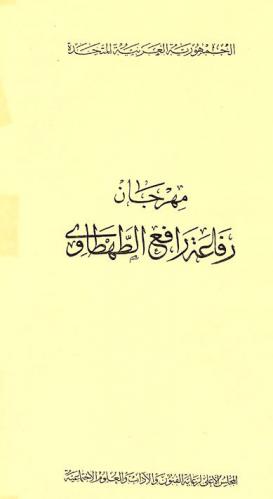 الجمهورية العربية المتحدة
مهرجان
رفاعة رافع الطهطاوى
المجلس الأعلى لرعاية الفنون والآداب والعلوم الاجتماعية